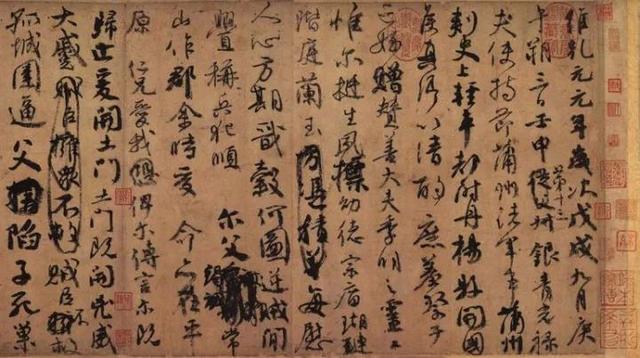 維乾元元年歲次戊戌九月庚
午朔三日壬申第十三從父叔銀青光祿
夫使持節蒲州諸軍事蒲州
刺史上輕車都尉丹楊縣開國
侯真卿以清酌庶羞祭于
亡姪贈贊善大夫季明之靈曰
惟爾挺生夙標幼德宗廟瑚璉
階庭蘭玉方憑積善每慰
人心方期戩穀何圖逆賊間
釁稱兵犯順爾父竭誠常
山作郡余時受命亦在平
原仁兄愛我恐俾爾傳言爾既
歸止爰開土門土門既開凶威
大蹙賊臣擁眾不救賊臣不救
孤城圍逼父擒陷子死巢